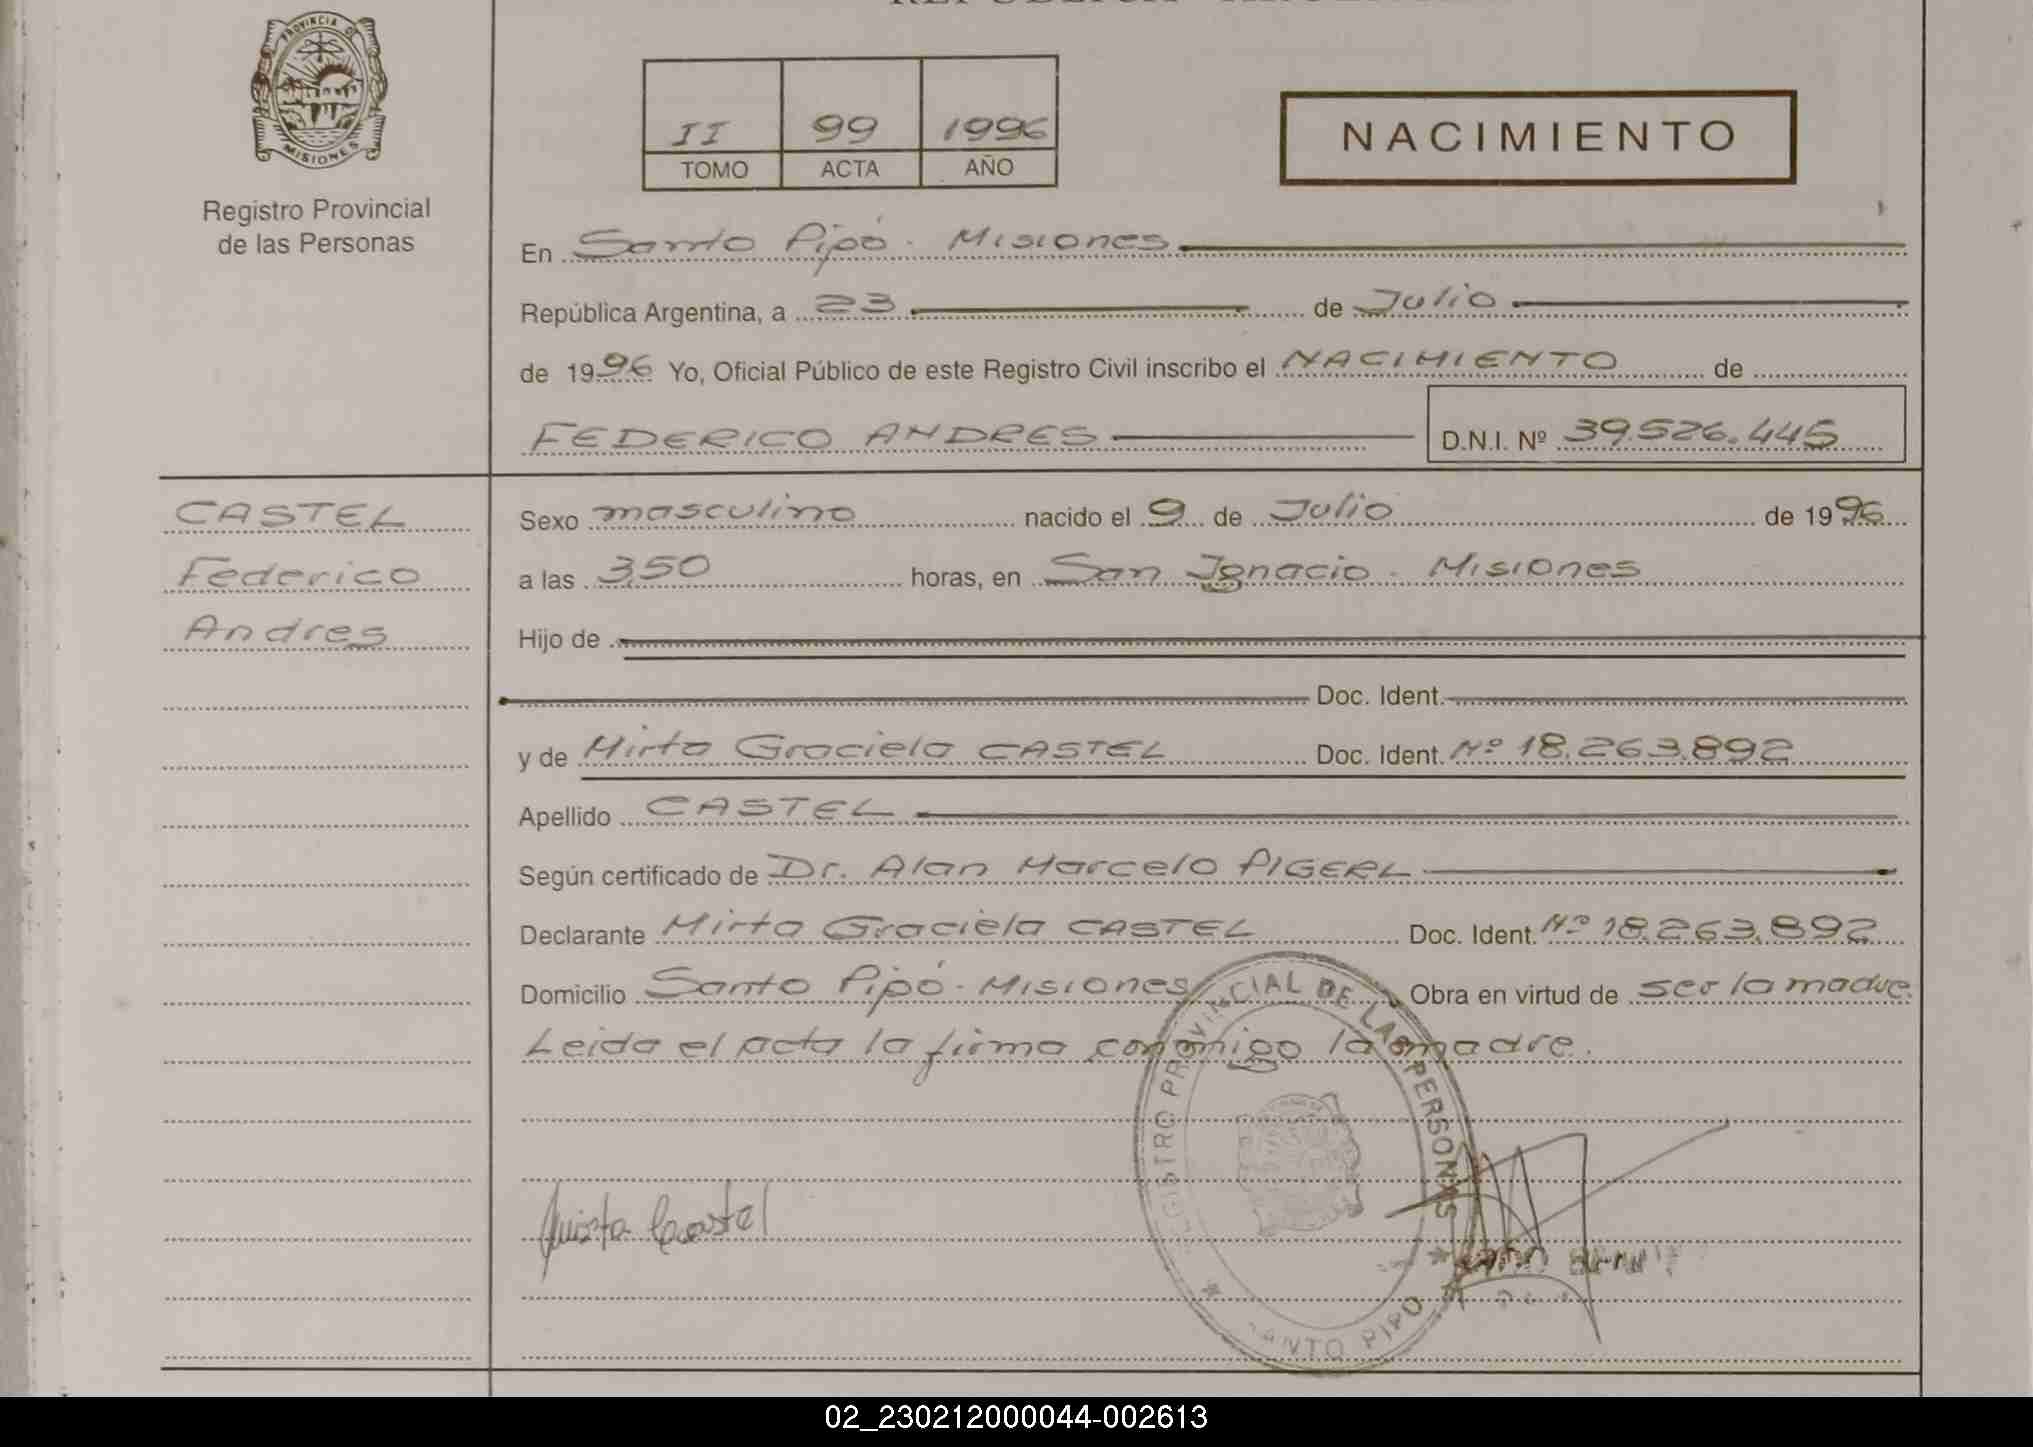 PROVINCIA DE
MISIONES
Registro Provincial
de las Personas
II 99 1996
TOMO ACTA AÑO
NACIMIENTO
En Santo Pipó - Misiones
República Argentina, a 23 de Julio
de 1996 Yo, Oficial Público de este Registro Civil inscribo el NACIMIENTO de
FEDERICO ANDRES D.N.I. Nº 39.526.445
CASTEL
Federico
Andres
Sexo masculino nacido el 9 de Julio de 1996
a las 3,50 horas, en San Ignacio - Misiones
Hijo de
Doc. Ident.
y de Mirta Graciela CASTEL Doc. Ident. Nº 18.263.892
Apellido CASTEL
Según certificado de Dr. Alan Marcelo PIGERL
Declarante Mirta Graciela CASTEL Doc. Ident. Nº 18.263.892
Domicilio Santo Pipó - Misiones Obra en virtud de ser la madre
Leida el acta la firma conmigo la madre.
REGISTRO PROVINCIAL DE LAS PERSONAS
SANTO PIPO
Mirta Castel
02_230212000044-002613